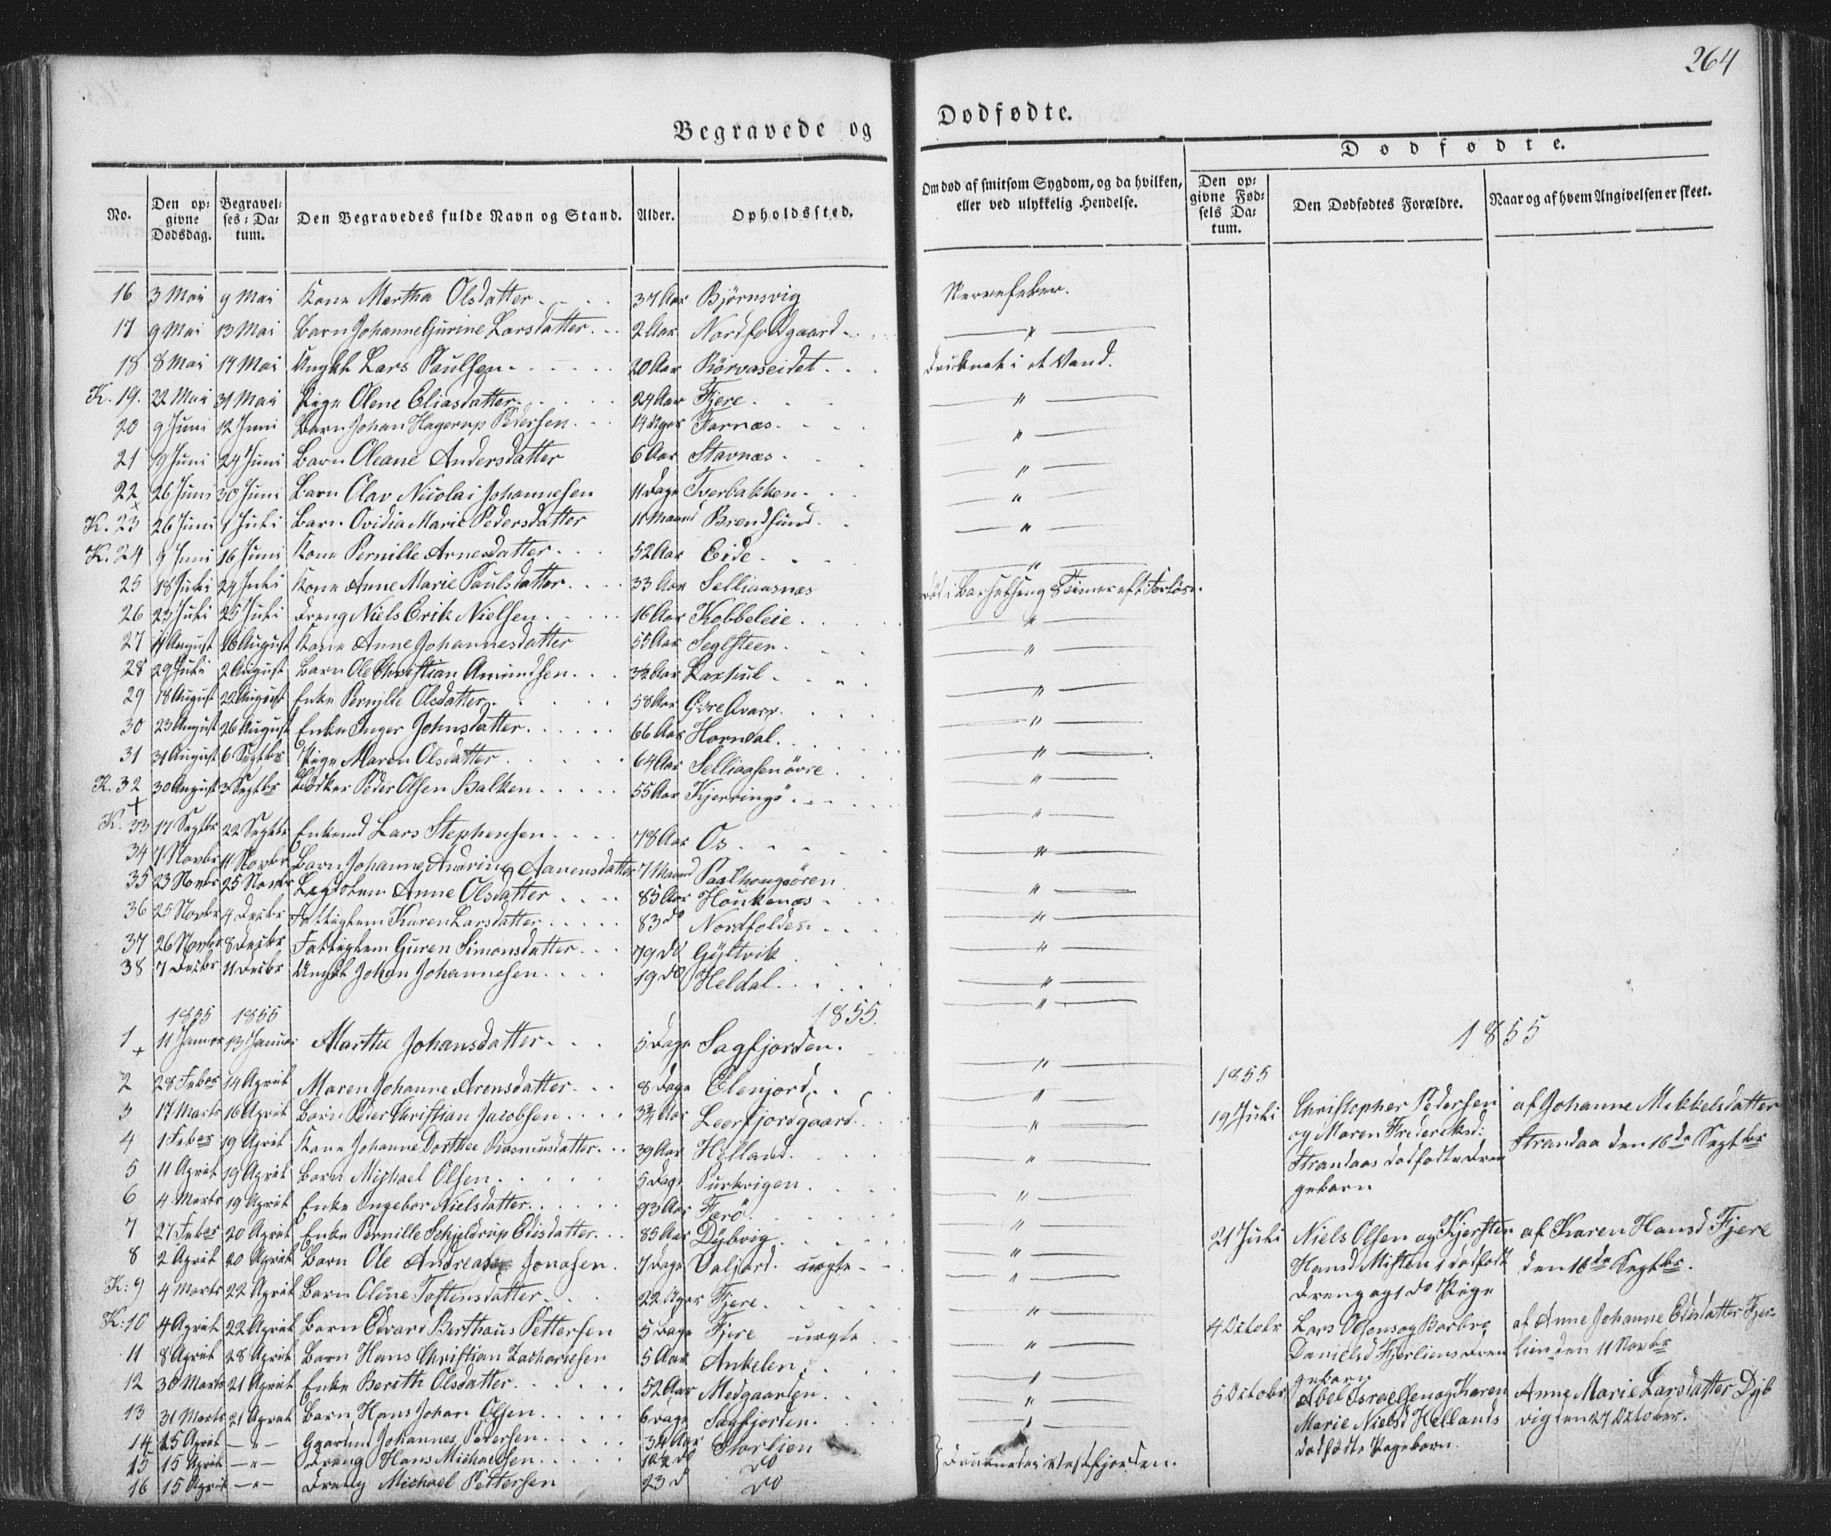 264
Begravede og Dødfødte.
Dødfødte.
No.
Den opgivne Dødsdag.
Begravelses-Datum.
Den Begravedes fulde Navn og Stand.
Alder.
Opholdssted.
Om død af smitsom Sygdom, og da hvilken, eller ved ulykkelig Hendelse.
Den opgivne Fødsels Datum.
Den Dødfødtes Forældre.
Naar og af hvem Angivelsen er skeet.
16 3 Mai 9 Mai Kone Martha Olsdatter 37 Aar Bjørnsvig Nervefeber.
17 9 Mai 13 Mai Barn Johanne Gurine Larsdatter 2 Aar Nordfoldgaard "
18 8 Mai 19 Mai Ungk Lars Paulsen 20 Aar Rørvaseidet Druknet i et Vand.
K. 19. 22 Mai 31 Mai Pige Olene Eliasdatter 24 Aar Fjere "
20 9 Juni 12 Juni Barn Johan Hagerup Pedersen 14 Uger Farnæs "
21 19 Juni 24 Juni Barn Oleane Andersdatter 6 Aar Stavnæs "
22 26 Juni 30 Juni Barn Olav Nicolai Johannesen 11 Dage Tverbakken "
K. 23 26 Juni 1 Juli Barn Ovidia Marie Pedersdatter 11 Maaned Brendsund "
K. 24 9 Juni 16 Juni Kone Pernille Arnesdatter 52 Aar Eide "
25 18 Juli 24 Juli Kone Anne Marie Paulsdatter 33 Aar Selliaasnæs død i Barselseng Timer eft Forløs.
26 23 Juli 25 Juli Dreng Niels Erik Nielsen 16 Aar Kobbeleie "
27 August 26 August Kone Anne Johannesdatter 55 Aar Seglsteen "
28 29 Juli 2 August Barn Ole Christian Amundsen Aar Laxhul "
29 18 August 22 August Enke Pernille Olsdatter 58 Aar "
30 23 August 26 August Enke Inger Johnsdatter 66 Aar Horndal "
31 31 August 6 Septbr Pige Maren Olsdatter 64 Aar Selliaasenøvre "
K. 32 30 August 3 Septbr Bødker Peder Olsen Balken 55 Aar Kjerringø "
K. 33 17 Septbr 22 Septbr Enkemd Lars Stephensen 78 Aar Os "
34 7 Novbr 11 Novbr Barn Johanne Andrine Aanensdatter 7 Maaned "
35 23 Novbr 25 Novbr Legdslem Anne Olsdatter 85 Aar Houkenæs "
36 25 Novbr 4 Decbr Fattiglem Karen Larsdatter 83 do Nordfolden "
37 26 Novbr 8 Decbr Fattiglem Guren Simonsdatter 79 do Gyltvik "
38 7 Decbr 11 Decbr Ungk Johan Johannesen 19 do Heldal "
1855 1855 1855.
1 11 Januar 13 Januar Marthe Johansdatter 5 Dage Sagfjorden. "
2 28 Febr 14 April Maren Johanne Arensdatter 8 Dage "
3 17 Marts 16 April Barn Peder Christian Jacobsen Aar Leerfjordgaard "
4 1 Febr 19 April Kone Johanne Dorthee Rasmusdatter 39 Aar Helland "
5 11 April 19 April Barn Michael Olsen 5 Dage Purkvigen "
6 4 Marts 19 April Enke Ingebor Nielsdatter 93 Aar Færø "
7 27 Febr 20 April Enke Pernille Schjeldrup Edisdatter 85 Aar Dybvig "
8 2 April 20 April Barn Ole Andreas Jonasen 7 Dage Valjord uægte "
K. 9 4 Marts 22 April Barn Oline Toftensdatter 22 Uger Fjere "
K. 10 4 April 22 April Barn Edvard Berthaus Pettersen 5 Dage Fjere uægte "
11 8 April 28 April Barn Hans Christian Zachariesen 5 Aar Ankelen "
12 30 Marts 21 April Enke Berith Olsdatter 52 Aar Medgaarden "
13 31 Marts 21 April Barn Hans Johan Olsen 6 Dage Sagfjorden "
14 15 April " Gaarmd Johannes Pedersen 34 Aar Storlien
15 15 April " Dreng Hans Michaelsen do Druknede i Vestfjorden.
16 15 April " Dreng Michael Pettersen 23 do
1855
1855
19 Juli Christopher Pedersen og Maren Frederiksd: Strandaas dødfødte Drengebarn
af Johanne Mikkelsdatter Strandaa den 16de Septbr
21 Juli Niels Olsen og Kjersten Hansd Misten 1 dødfødt Dreng og 1 do Pige
af Karen Hansd Fjere den 16de Septbr.
4 Octobr Lars Olsens og Barbro Danielsd Fjerliens Drengebarn
af Anne Johanne Edisdatter Fjerlien den 11 Novbr
5 Octobr Abel Israelsen og Karen Marie Nielsd Hellands dødfødte Pigebarn.
Anne Marie Larsdatter Dybvig den 27 October.